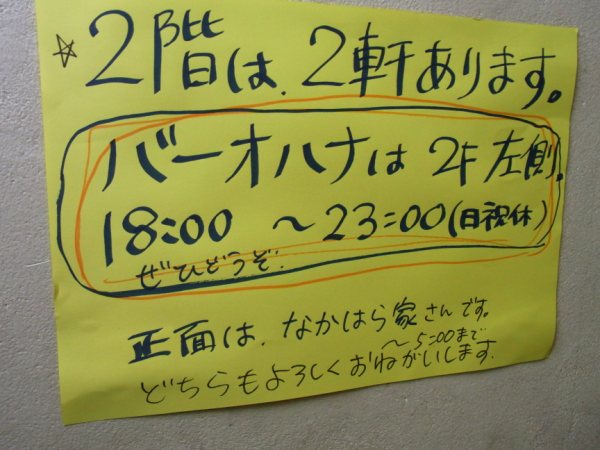 ☆2階は、2軒あります。
バーオハナは 2F 左側。
18:00 〜23:00(日祝休)
ぜひどうぞ!
正面は、なかはら家さんです。
〜5:00まで
どちらもよろしくおねがいします。